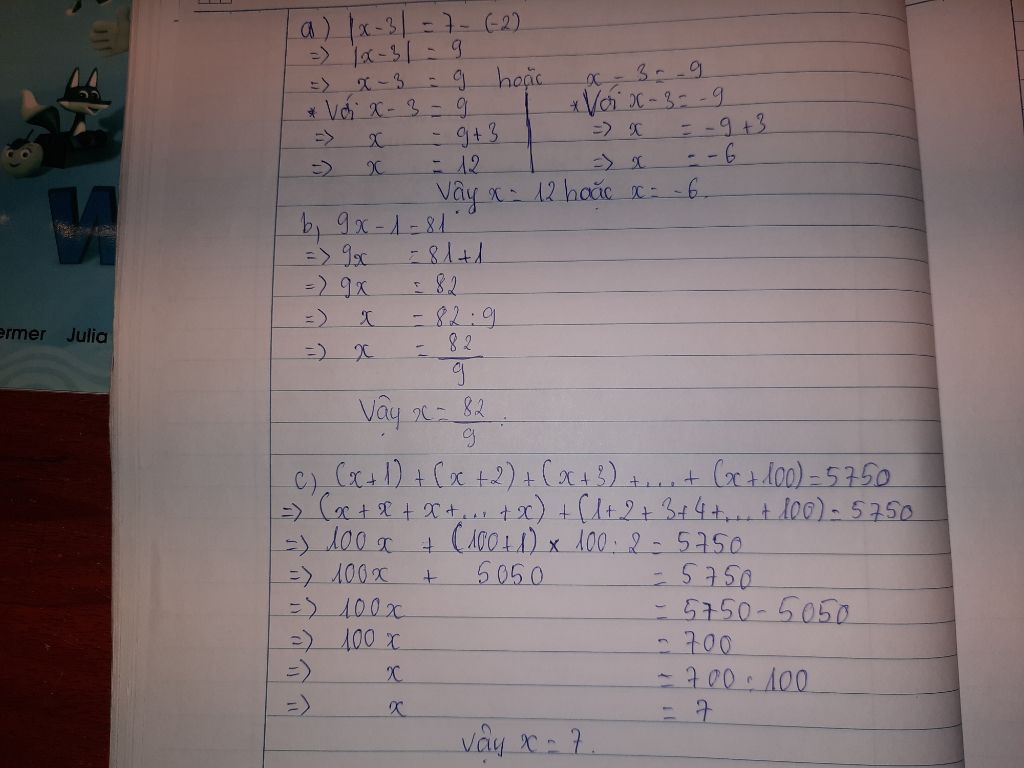 a) |x-3| = 7 - (-2)
=> |x-3| = 9
=> x - 3 = 9 hoặc x - 3 = -9
* Với x - 3 = 9
=> x = 9+3
=> x = 12
* Với x - 3 = -9
=> x = -9 + 3
=> x = -6
Vậy x = 12 hoặc x = -6.
b, 9x - 1 = 81
=> 9x = 81+1
=> 9x = 82
=> x = 82 : 9
=> x = 82/9
Vậy x = 82/9.
c) (x+1) + (x+2) + (x+3) +...+ (x+100) = 5750
=> (x + x + x +...+ x) + (1+2+3+4+...+100) = 5750
=> 100x + (100+1) × 100 : 2 = 5750
=> 100x + 5050 = 5750
=> 100x = 5750 - 5050
=> 100x = 700
=> x = 700 : 100
=> x = 7
Vậy x = 7.
ermer Julia